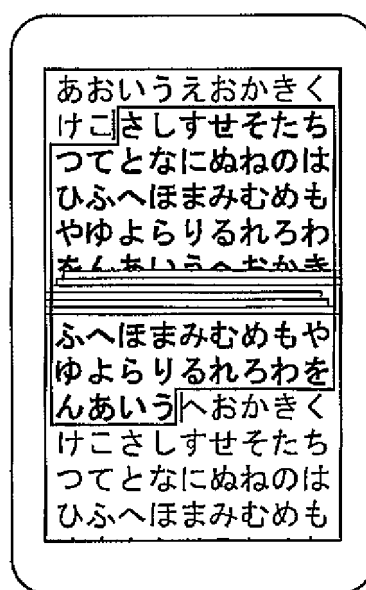 あおいうえおかきく
けこさしすせそたち
つてとなにぬねのは
ひふへほまみむめも
やゆよらりるれろわ
をんあいうへおかき
ふへほまみむめもや
ゆよらりるれろわを
んあいうへおかきく
けこさしすせそたち
つてとなにぬねのは
ひふへほまみむめも